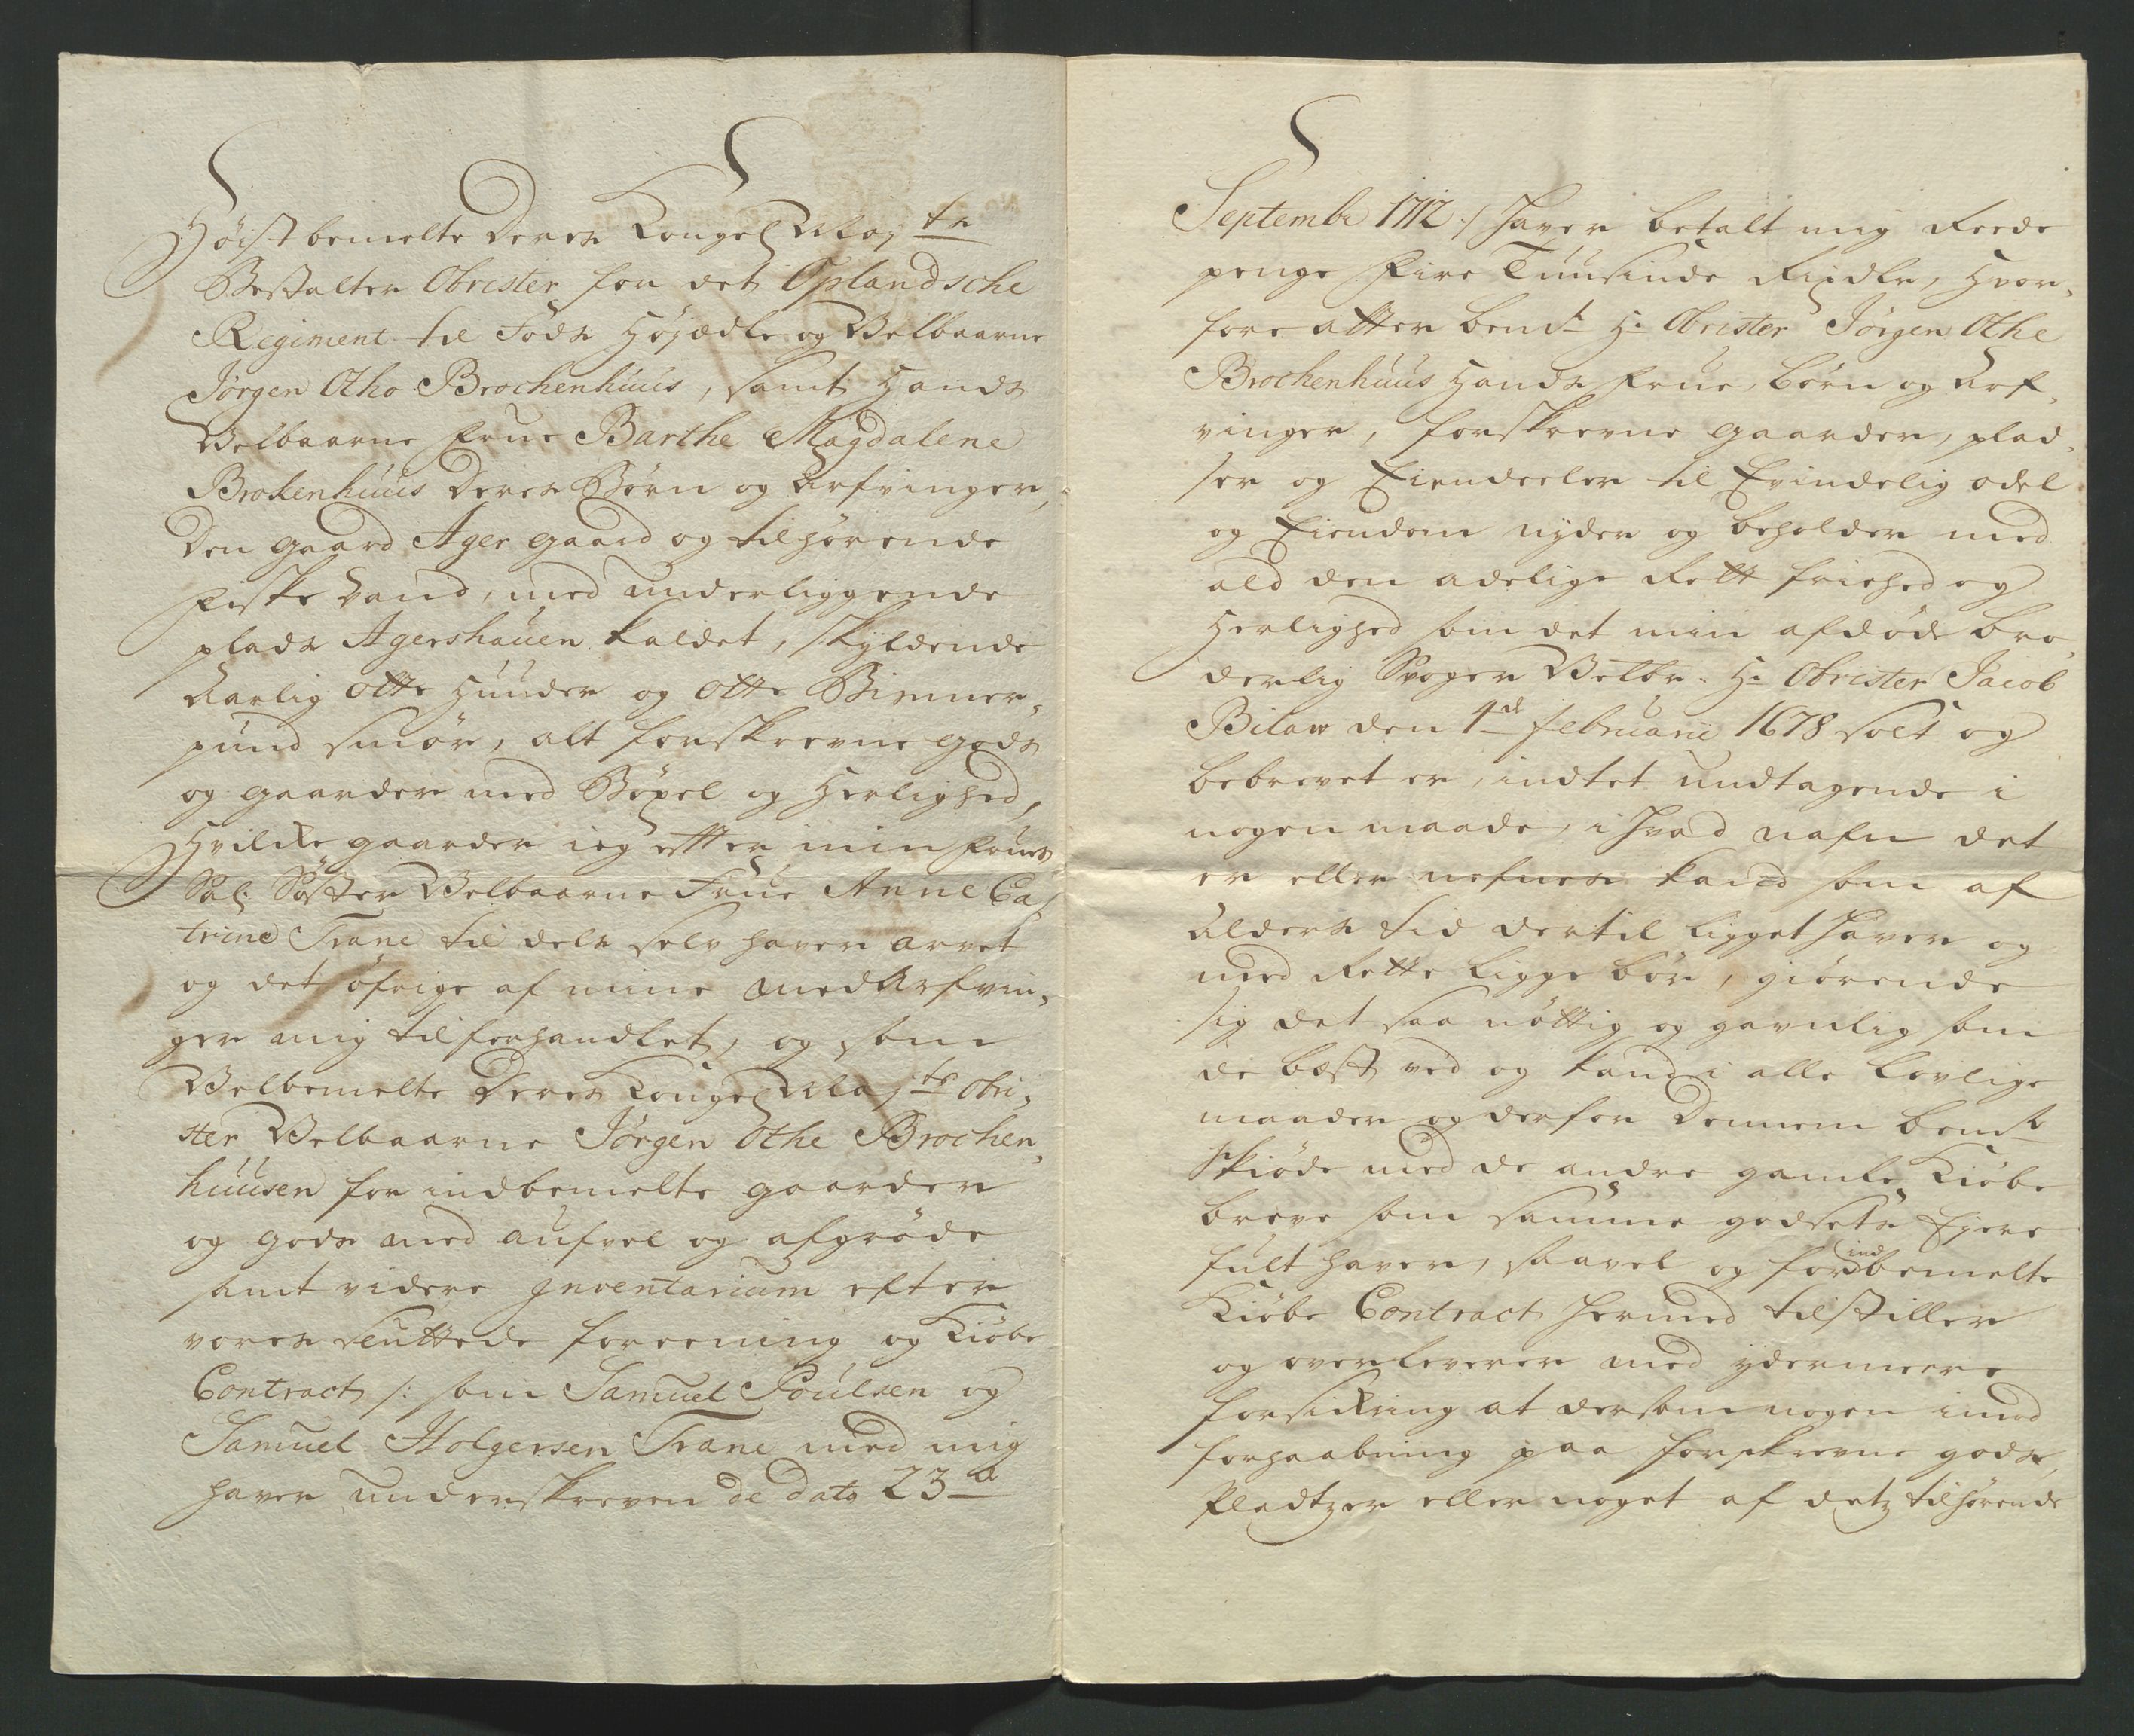 Höist bemelte Deres Kongel Maj.ts
Bestalter Obrister for det Oplandsche
Regiment til Fods Höjædle og Velbaarne
Jörgen Otho Brochenhuus, samt Hands
Velbaarne Frue Barthe Magdalene
Brokenhuus Deres Börn og Arfvinger,
Den gaard Ager gaard og tilhörende
Fiske Vand, med underliggende
plads Agershauen kaldet, skyldende
Aarlig otte Huuder og otte Bismer-
pund smör, alt forskrevne gods
og gaarder med Böxel og Herlighed,
Hvilke gaarder ieg etter min Frues
Sal: Söster Velbaarne Frue Anne Ca-
trine Trane til dels selv haver arvet
og det öfrige af mine medArfvin-
ger mig tilforhandlet, og som
Velbemelte Deres Kongel Maj.ts Obri-
ster Velbaarne Jörgen Othe Brochen-
huusen for indbemelte gaarder
og gods med aufvel og afgröde
samt videre Inventarium efter
vores sluttede foreening og Kiöbe
Contract /: som Samuel Poulsen og
Samuel Holgersen Trane med mig
haver underskreven de dato 23d
Septembr 1712 :/ haver betalt mig Reede
penge Fire Tuusinde Rixdlr, Hvor-
fore atter bemt Hr Obrister Jörgen Othe
Brochenhuus Hands Frue, börn og Arf-
vinger, forskrevne gaarder, plad-
ser og Eiendeeler til Evindelig odel
og Eiendom nyder og beholder med
ald den adelige Rett friehed og
Herlighed som det min afdöde bro-
derlig Svoger Velbr. Hr Obrister Jacob
Bilaw den 1d februarii 1678 solt og
bebrevet er, indtet undtagende i
nogen maade, i hvad nafn det
er eller nefnes kand som af
Alders tid dertil ligget haver og
med Rette ligge bör, giörende
sig det saa nöttig og gavnlig som
de best ved og kand i alle lovlige
maader og derfor Dennem bemt
skiöde med de andre gamle Kiöbe
breve som samme godsets Eyere
fult haver, saavel og for ind bemelte
Kiöbe Contract hermed tilstiller
og overleverer med ydermeere
forsikring at dersom nogen imod
forhaabning paa forskrevne gods,
Pladtzer eller noget af detz tilhörende